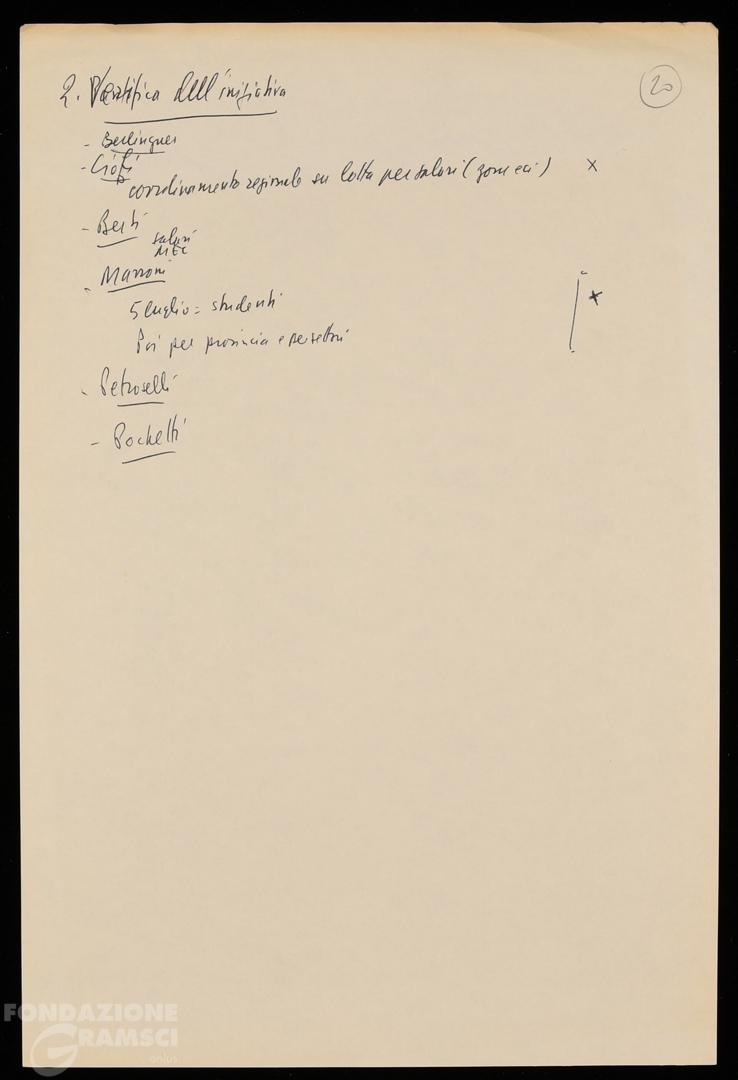 20
2. Verifica dell'iniziativa
- Berlinguer
- Ciofi
coordinamento regionale su lotta per salari (zone ecc) x
- Berti
salari
MEC
- Marroni
5 luglio = studenti x
Poi per provincia e per settori
- Petroselli
- Pochetti
FONDAZIONE
GRAMSCI
onlus